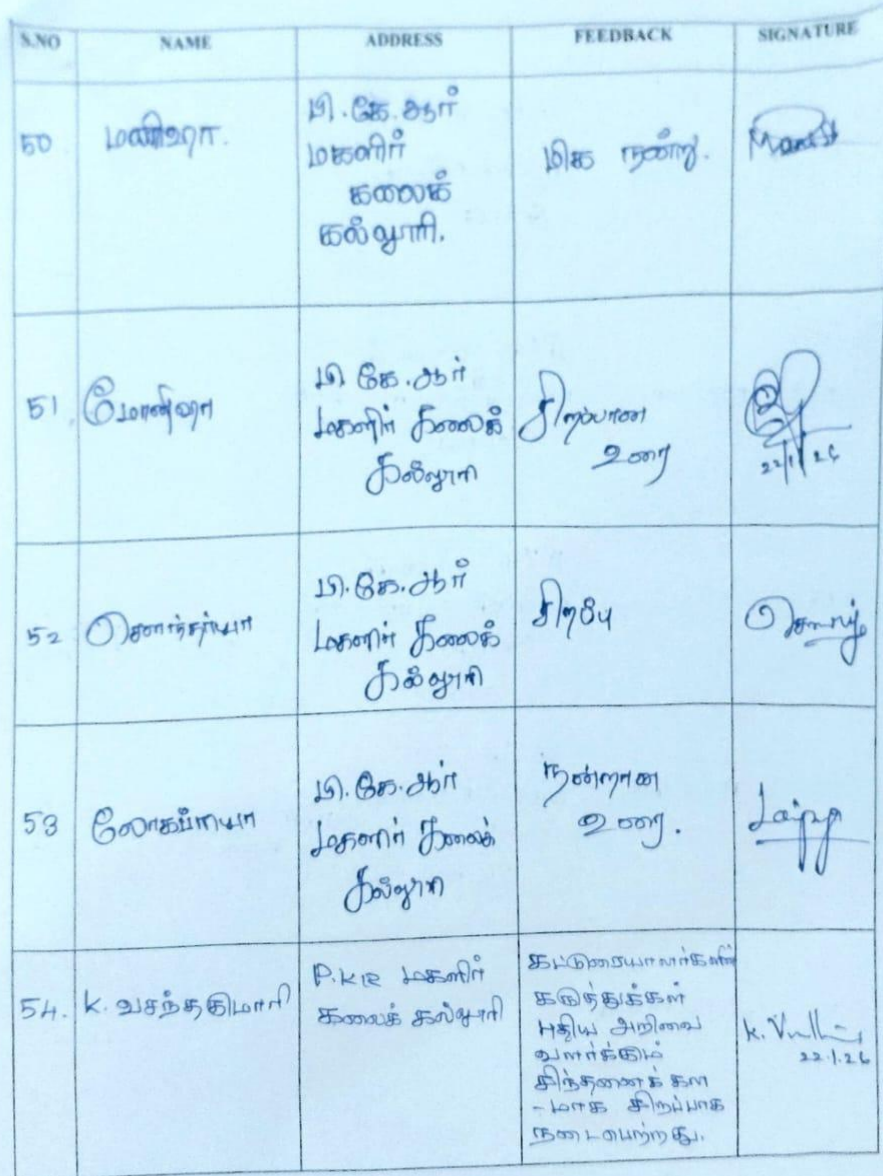 S.NO NAME ADDRESS FEEDBACK SIGNATURE
50 மணிஷா. பி.கே.ஆர் மகளிர் கலைக் கல்லூரி. மிக நன்று.
51 மோனிஷா பி.கே.ஆர் மகளிர் கலைக் கல்லூரி சிறப்பான உரை 22/1/26
52 சௌந்தர்யா பி.கே.ஆர் மகளிர் கலைக் கல்லூரி சிறப்பு
53 லோகப்ரியா பி.கே.ஆர் மகளிர் கலைக் கல்லூரி நன்றான உரை.
54. K. வசந்தகுமாரி P.KR மகளிர் கலைக் கல்லூரி கட்டுரையாளர்களின் கருத்துக்கள் புதிய அறிவை வளர்க்கும் சிந்தனைக் கள -மாக சிறப்பாக நடைபெற்றது. 22.1.26